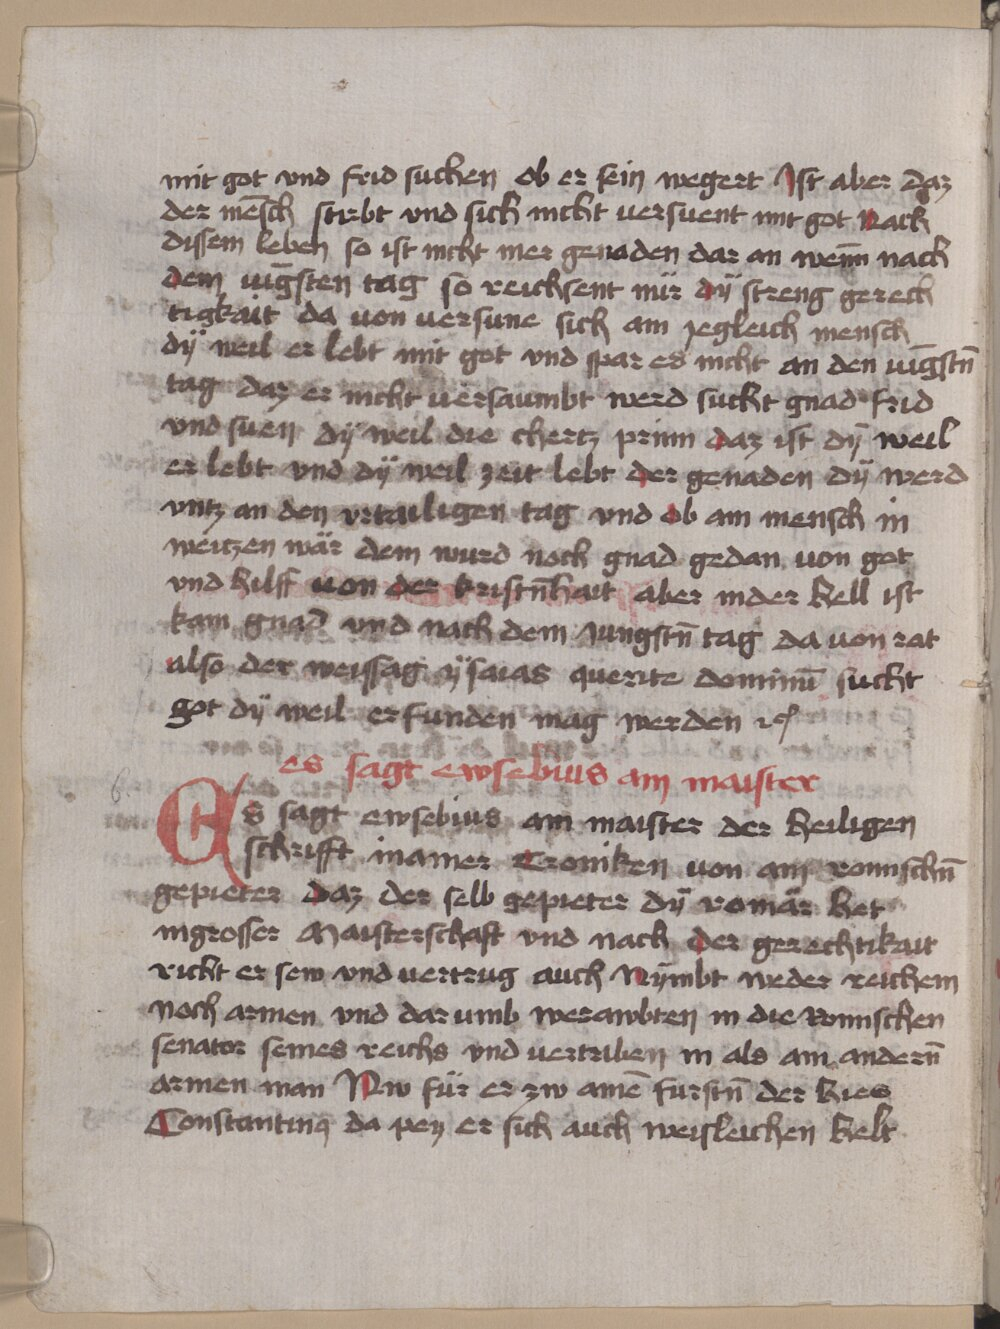 mit got vnd frid suchen ob er sein wegert Ist aber daz
der mēsch stirbt vnd sich nicht uersuent mit got Nach
dissem leben so ist nicht mer genaden dar an wenn̄ nach
dem iūgsten tag so reichsent nür dÿ streng gerech
tigkait da uon uersune sich ain yegleich mensch
dÿ weil er lebt mit got vnd spar es nicht an den iūgstn̄
tag daz er nicht uersaumbt werd sucht gnad frid
vnd suen dÿ weil die chertz prinn daz ist dÿ weil
er lebt vnd dÿ weil zeit lebt der genaden dÿ werd
vntz an den vrtailigen tag vnd ob ain mensch in
weitzen wär dem wurd noch gnad gedan uon got
vnd hilff uon der kristn̄hait aber inder hell ist
kain gnad vnd nach dem iungstn̄ tag da uon rat
also der weissag ysaias querite dominū sucht
got dÿ weil er funden mag werden ⁊c̃
es sagt ewsebius ain maister
6.
Es sagt ewsebius ain maister der heiligen
schrifft in ainer Croniken uon aim romischn̄
gepieter daz der selb gepieter dÿ romär het
in grosser Maisterschafft vnd nach der gerechtikait
richt er sew vnd uertrug auch Nÿmbt weder reichem
noch armen vnd dar umb werawbten in die Romischen
senator seines reichs vnd uertriben in als ain andern̄
armen man Nw für er zw ainē furstn̄ der hies
Constantinꝰ da pey er sich auch weisleichen helt